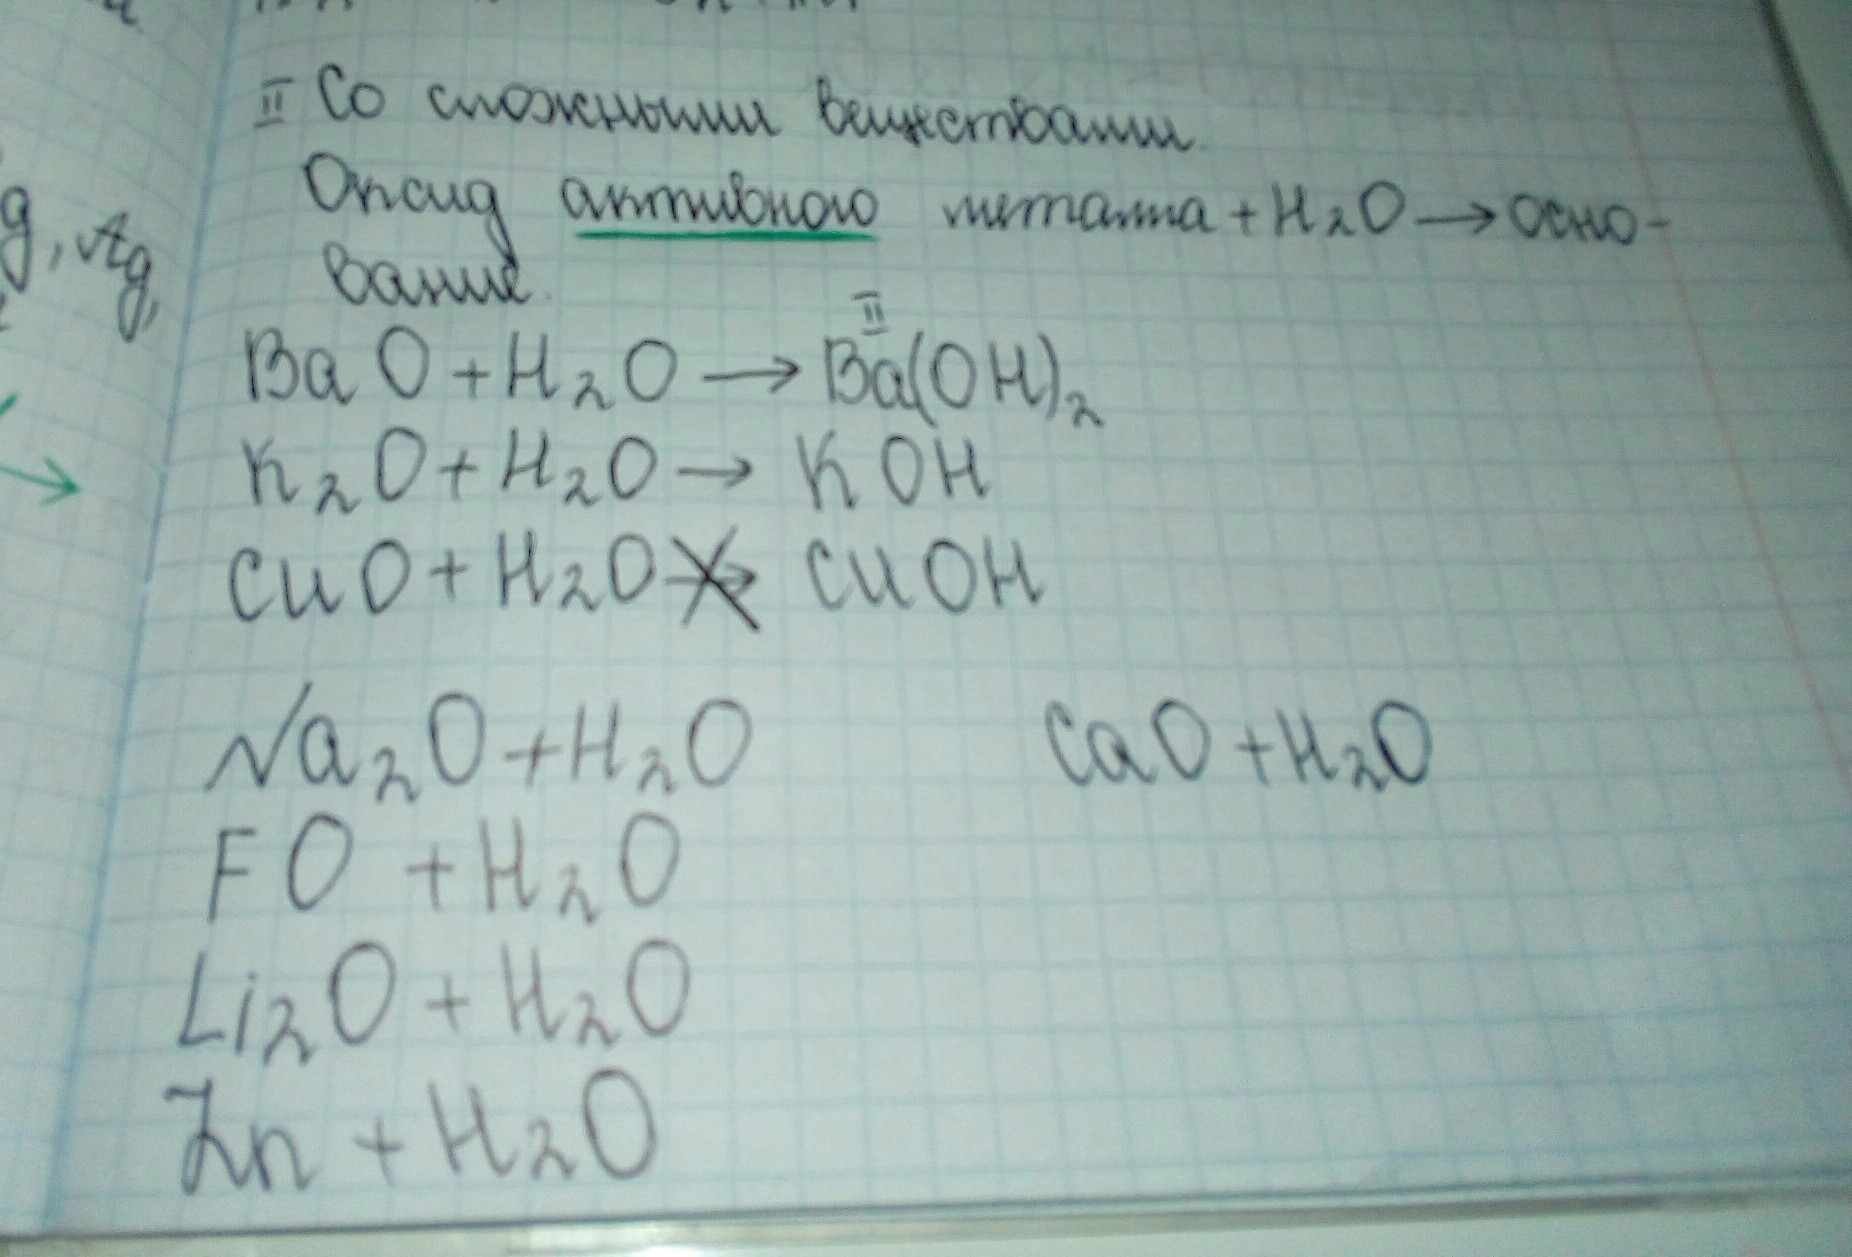 II Со сложными веществами.
Оксид активного металла + H₂O → осно-
вание.
II
BaO + H₂O → Ba(OH)₂
K₂O + H₂O → KOH
CuO + H₂O → CuOH
Na₂O + H₂O CaO + H₂O
FO + H₂O
Li₂O + H₂O
Zn + H₂O
g, Ag,